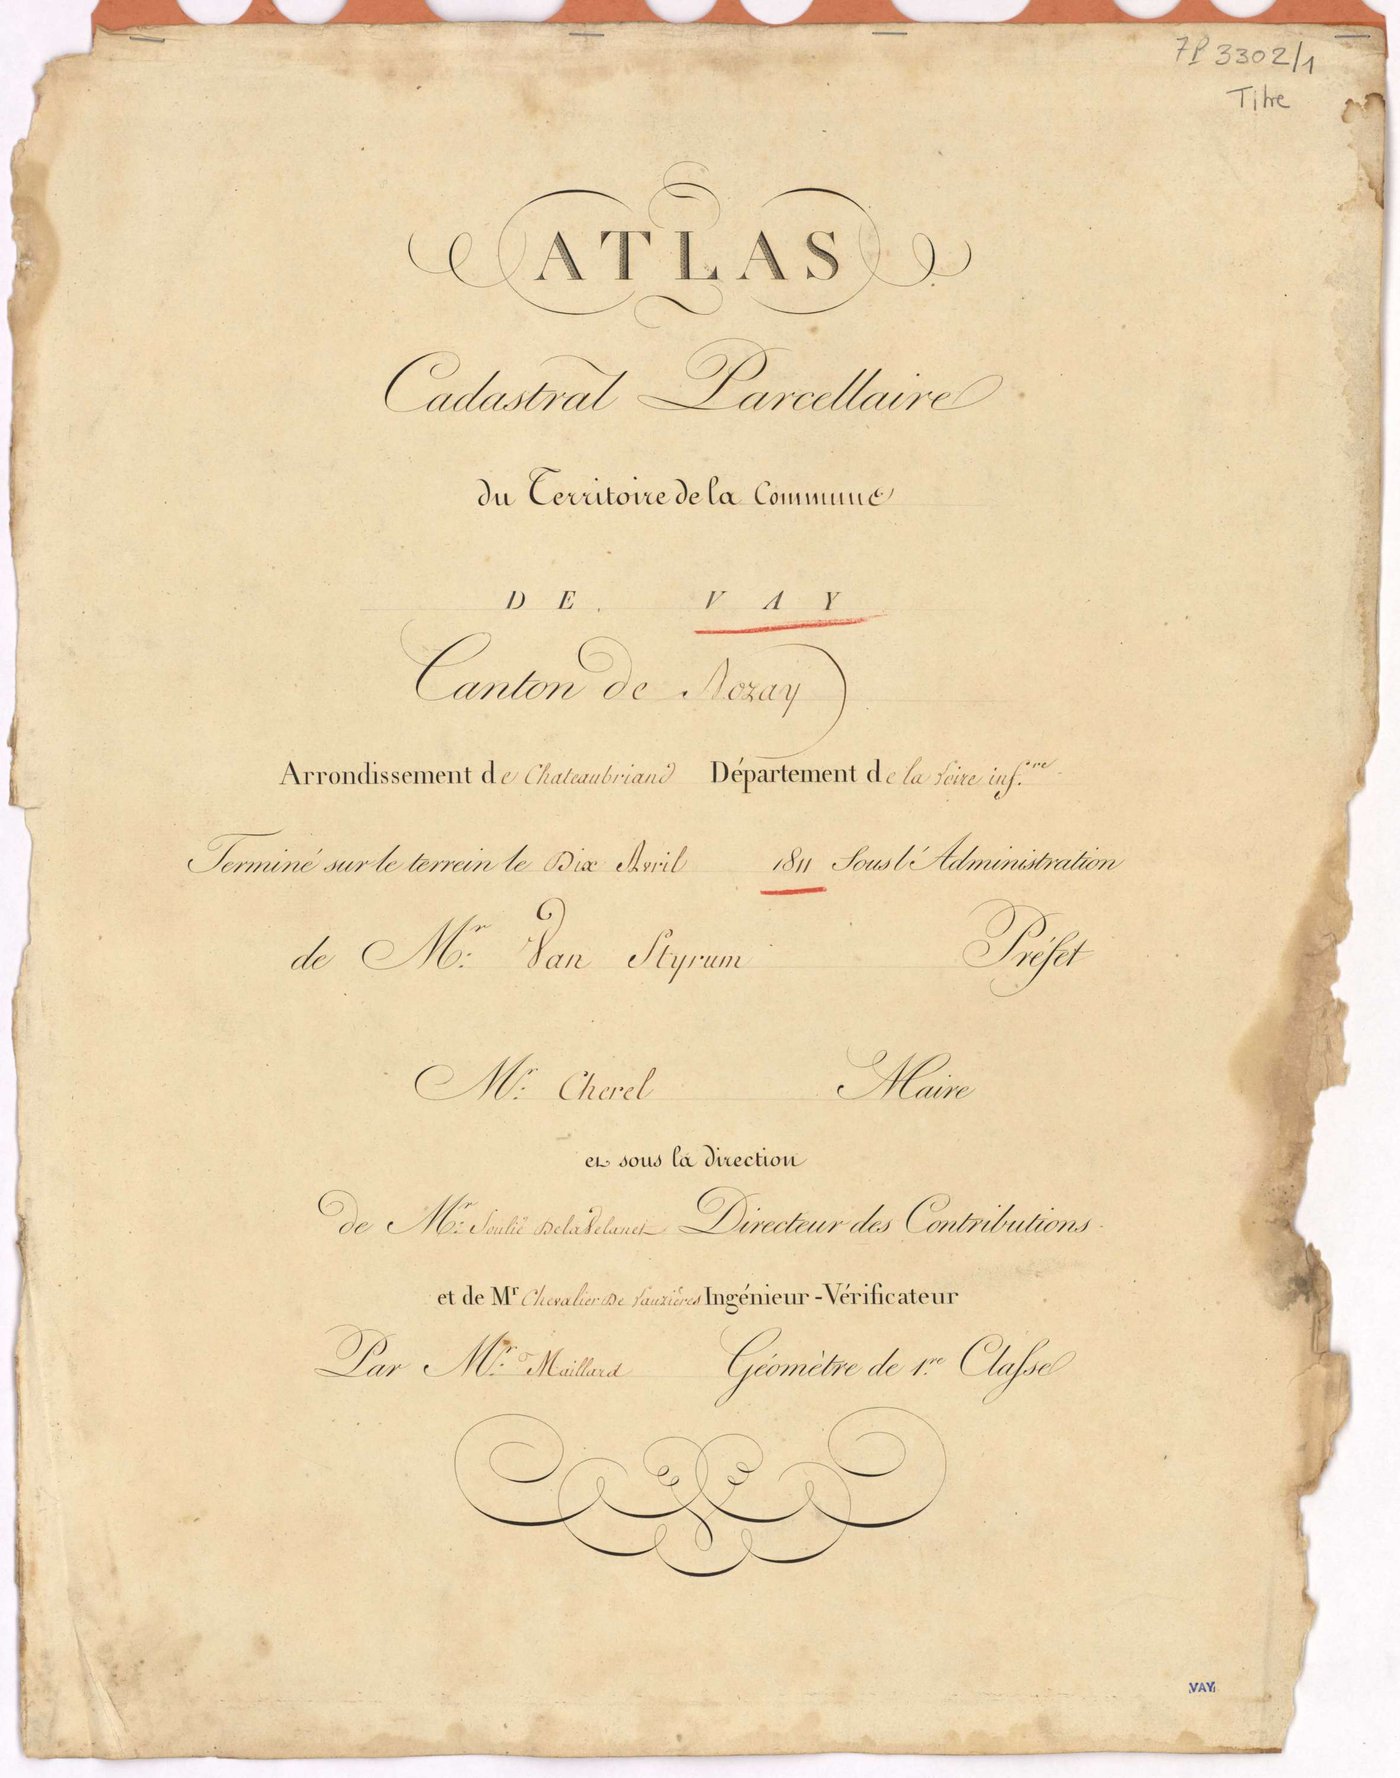 7P 3302/1
Titre
ATLAS
Cadastral Parcellaire
du Territoire de la Commune
DE VAY
Canton de Nozay
Arrondissement de Chateaubriand Département de la Loire inf.re
Terminé sur le terrein le Dix Avril 1811 Sous l'Administration
de Mr. Van Styrum Préfet
Mr. Cherel Maire
et sous la direction
de Mr. Soulié Dela Velanet Directeur des Contributions
et de Mr Chevalier De Lauzières Ingénieur-Vérificateur
Par Mr. Maillard Géomètre de 1.re Classe
VAY